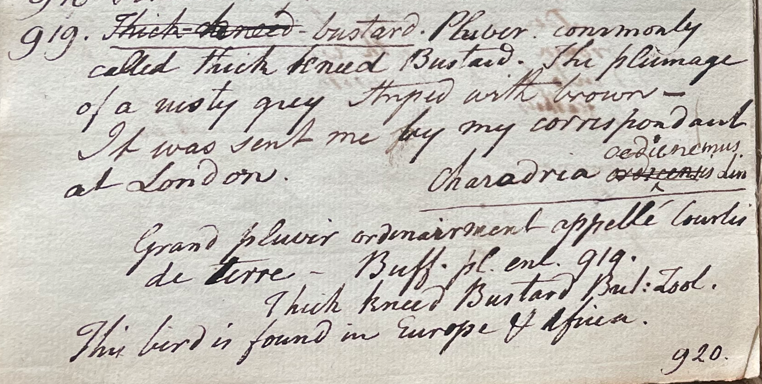 919. Thick-kneed-bustard. Pluver. commonly
called thick kneed Bustard. The plumage
of a rusty grey striped with brown –
It was sent me by my correspondant
at London. Charadria oedicnemus Lin
Grand pluvir ordinairment appellé Courlis
de terre – Buff. pl. enl. 919.
Thick kneed Bustard Brit: Zool.
This bird is found in Europe & Africa.
920.